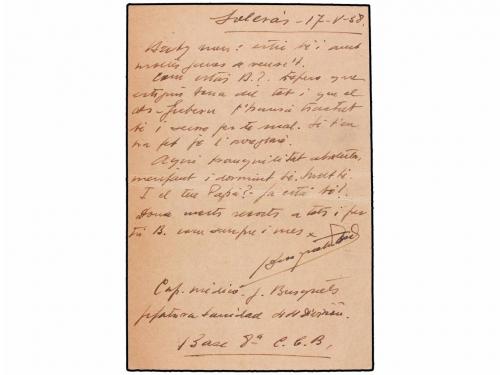 Solerás - 17-V-38.
Betty meu: estic bé i amb
moltes ganes a veure't.
Com estás B.? Espero que
estiguis bona del tot i que el
dr. Gubern t'haurá tractat
bé i sense fer-te mal. Si t'en
ha fet je l'
Aquí tranquilitat absoluta,
menjant i dormint bé.
I el teu Papá? Ja está bé?
Dona molts records a tots i per
tú B. com sempre i mes
Cap. médico J. Busquéts
Jefatura Sanidad 44 División.
Base 8ª C.C.B.